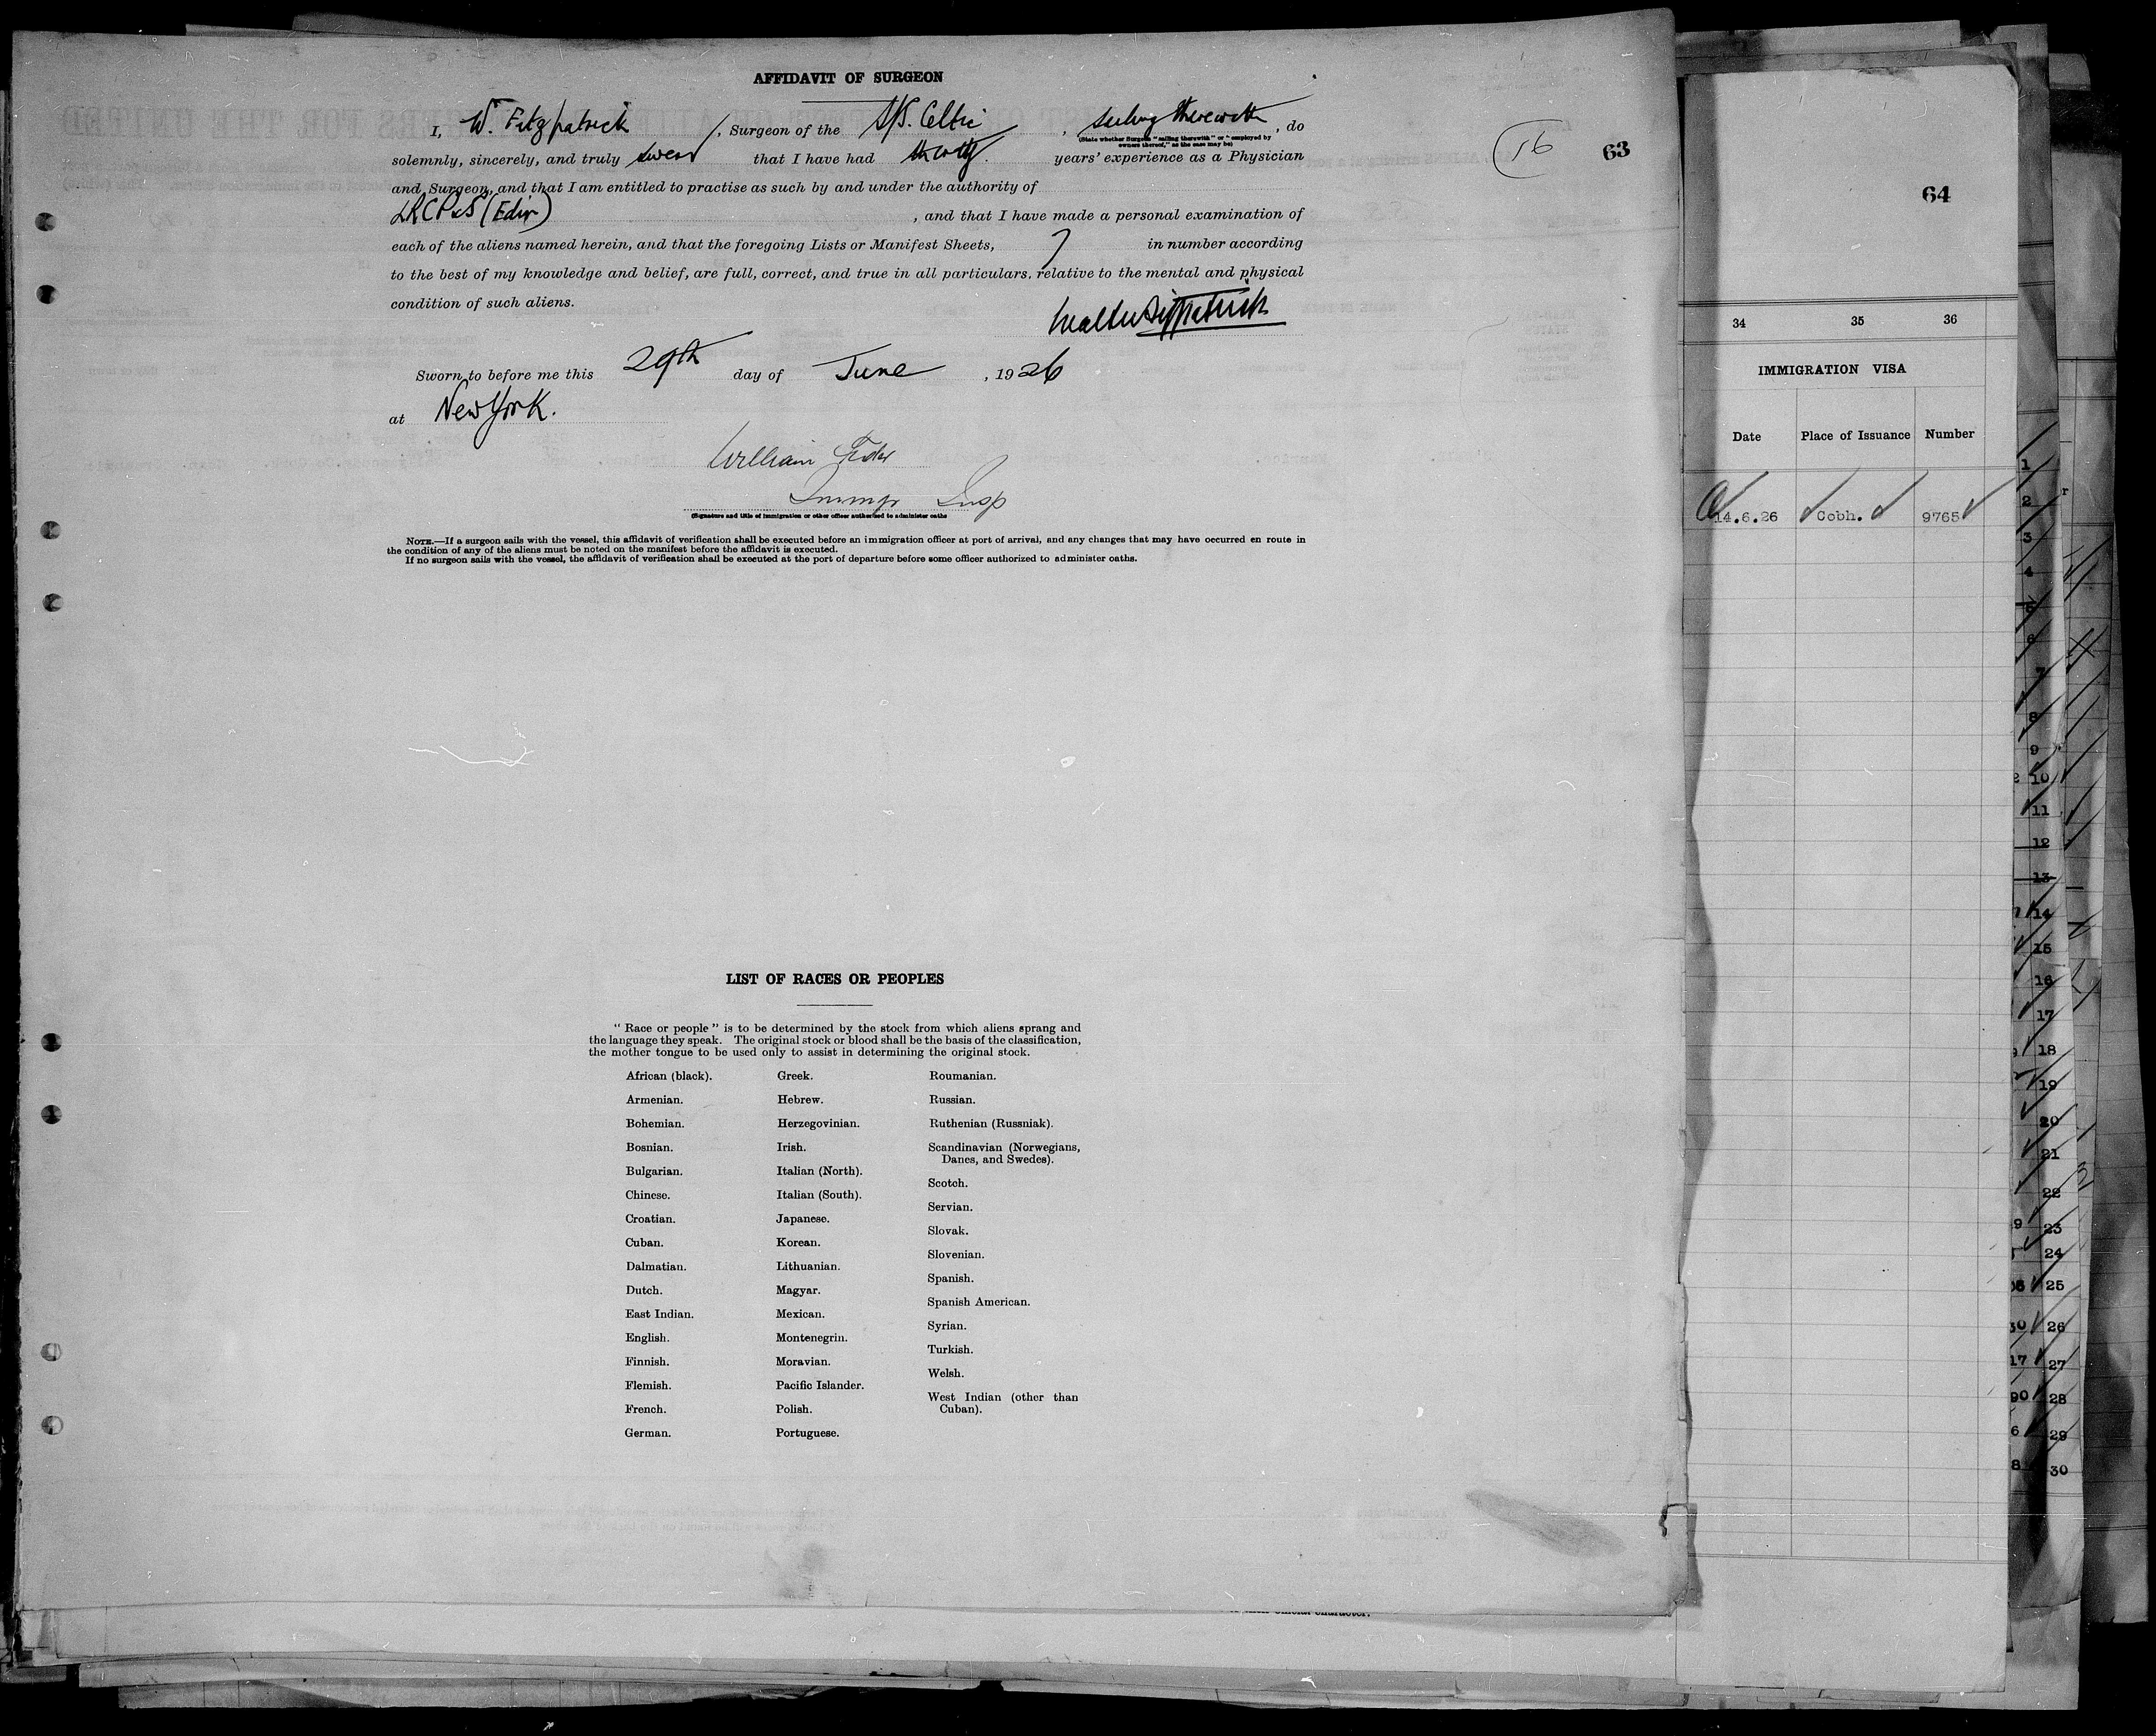 AFFIDAVIT OF SURGEON
I, W. Fitzpatrick, Surgeon of the S/S. Celtic, sailing therewith, do
(State whether Surgeon "sailing therewith" or "employed by
owners thereof," as the case may be)
solemnly, sincerely, and truly swear that I have had thirty years' experience as a Physician
and Surgeon, and that I am entitled to practise as such by and under the authority of
LRCP&S (Edin), and that I have made a personal examination of
each of the aliens named herein, and that the foregoing Lists or Manifest Sheets, 7 in number according
to the best of my knowledge and belief, are full, correct, and true in all particulars, relative to the mental and physical
condition of such aliens.
Walter Fitzpatrick
Sworn to before me this 29th day of June, 1926
at New York.
William
Immgr Insp
(Signature and title of immigration or other officer authorized to administer oaths
NOTE.—If a surgeon sails with the vessel, this affidavit of verification shall be executed before an immigration officer at port of arrival, and any changes that may have occurred en route in
the condition of any of the aliens must be noted on the manifest before the affidavit is executed.
If no surgeon sails with the vessel, the affidavit of verification shall be executed at the port of departure before some officer authorized to administer oaths.
16
63
LIST OF RACES OR PEOPLES
"Race or people" is to be determined by the stock from which aliens sprang and
the language they speak. The original stock or blood shall be the basis of the classification,
the mother tongue to be used only to assist in determining the original stock.
African (black).
Armenian.
Bohemian.
Bosnian.
Bulgarian.
Chinese.
Croatian.
Cuban.
Dalmatian.
Dutch.
East Indian.
English.
Finnish.
Flemish.
French.
German.
Greek.
Hebrew.
Herzegovinian.
Irish.
Italian (North).
Italian (South).
Japanese.
Korean.
Lithuanian.
Magyar.
Mexican.
Montenegrin.
Moravian.
Pacific Islander.
Polish.
Portuguese.
Roumanian.
Russian.
Ruthenian (Russniak).
Scandinavian (Norwegians,
Danes, and Swedes).
Scotch.
Servian.
Slovak.
Slovenian.
Spanish.
Spanish American.
Syrian.
Turkish.
Welsh.
West Indian (other than
Cuban).
64
34 35 36
IMMIGRATION VISA
Date Place of Issuance Number
14.6.26 Cobh. 9765
1
2
3
4
5
6
7
8
9
10
11
12
13
14
15
16
17
18
19
20
21
22
23
24
25
26
27
28
29
30